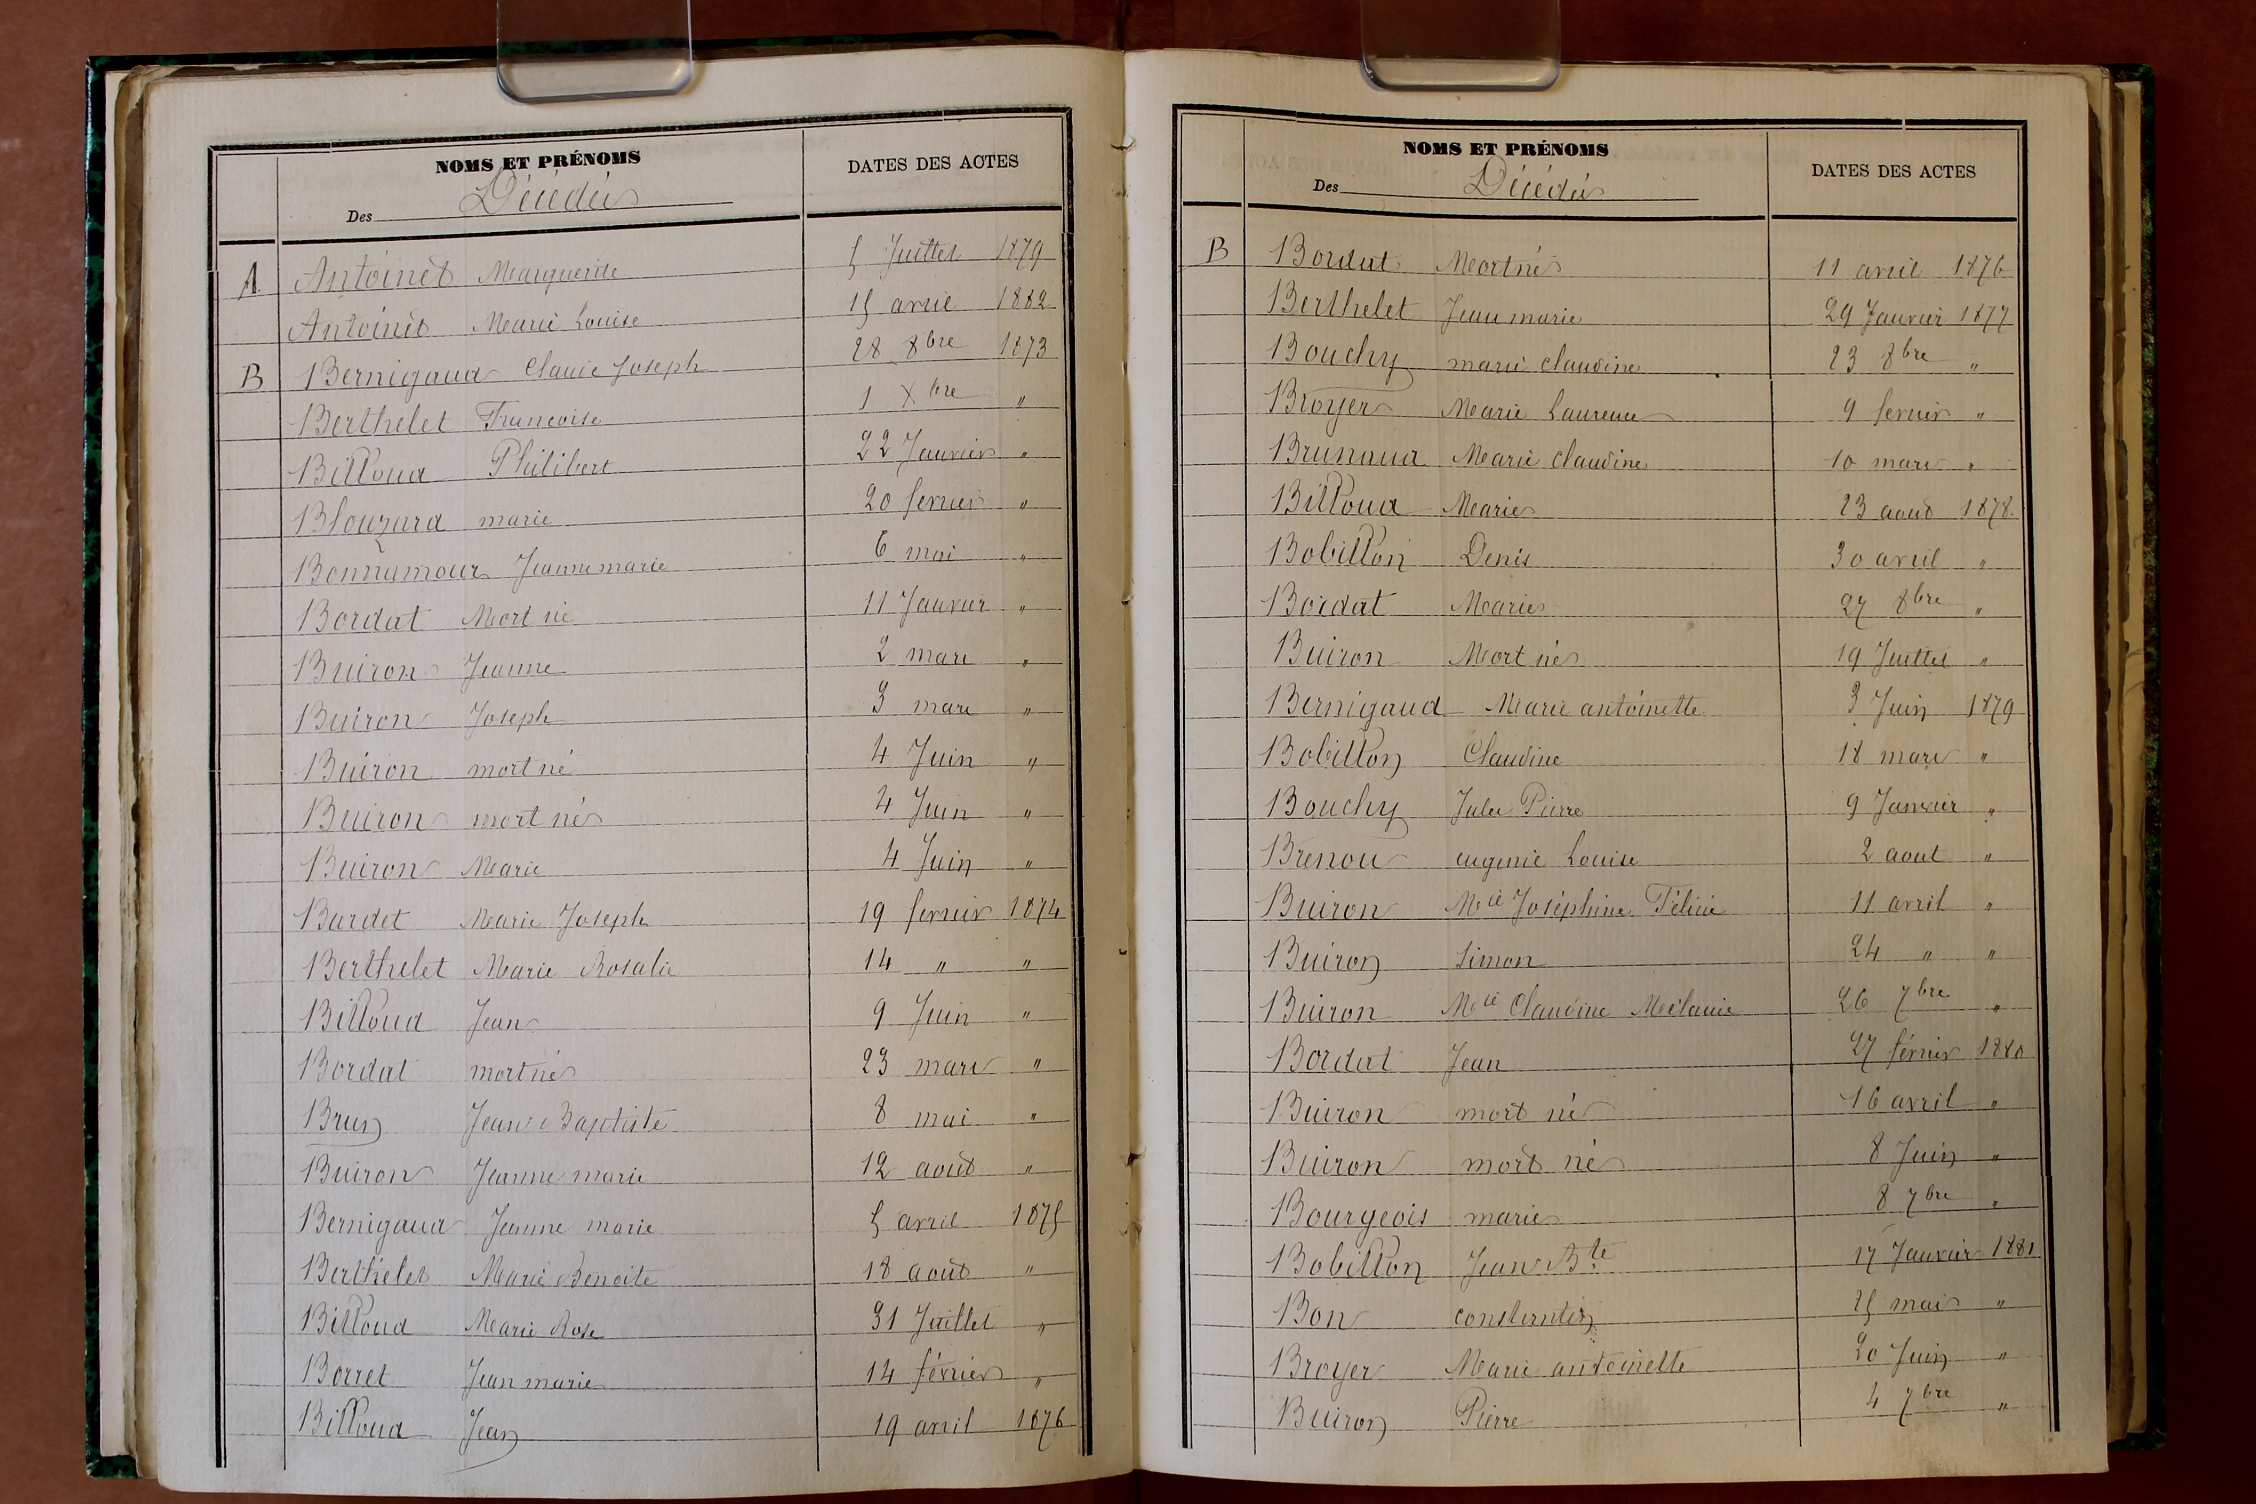 NOMS ET PRÉNOMS
DATES DES ACTES
Des Décédés
A Antoinet Marguerite 5 Juillet 1879
Antoinet Marie Louise 15 avril 1882
B Bernigaud Claude Joseph 28 8bre 1873
Berthelet Francoise 1 Xbre "
Billoud Philibert 22 Janvier "
Blouzard marie 20 fevrier "
Bonnamour Jeanne marie 6 mai "
Bordat Mort né 11 Janvier "
Buiron Jeanne 2 mars "
Buiron Joseph 3 mars "
Buiron mort né 4 Juin "
Buiron mort né 4 Juin "
Buiron Marie 4 Juin "
Bardet Marie Joseph 19 fevrier 1874
Berthelet Marie Rosalie 14 " "
Billoud Jean 9 Juin "
Bordat mort né 23 mars "
Brun Jean Baptiste 8 mai "
Buiron Jeanne marie 12 août "
Bernigaud Jeanne marie 5 avril 1875
Berthelet Marie Benoite 18 août "
Billoud Marie Rose 31 Juillet "
Borret Jean marie 14 février "
Billoud Jean 19 avril 1876
NOMS ET PRÉNOMS
DATES DES ACTES
Des Décédés
B Bordat Mort né 11 avril 1876
Berthelet Jean marie 29 Janvier 1877
Bouchy marie claudine 23 8bre "
Broyer Marie Laurence 9 fevrier "
Brunaud Marie claudine 10 mars "
Billoud Marie 23 août 1878
Bobillon Denis 30 avril "
Bordat Marie 27 8bre "
Buiron Mort né 19 Juillet "
Bernigaud Marie antoinette 3 Juin 1879
Bobillon Claudine 18 mars "
Bouchy Jules Pierre 9 Janvier "
Brenou eugenie Louise 2 aout "
Buiron Mie Joséphine Félicie 11 avril "
Buiron Simon 24 " "
Buiron Mie Claudine Mélanie 26 7bre "
Bordat Jean 27 février 1880
Buiron mort né 16 avril "
Buiron mort né 8 Juin "
Bourgeois marie 8 7bre "
Bobillon Jean Bte 17 Janvier 1881
Bon constantin 25 mai "
Broyer Marie antoinette 20 Juin "
Buiron Pierre 4 7bre "